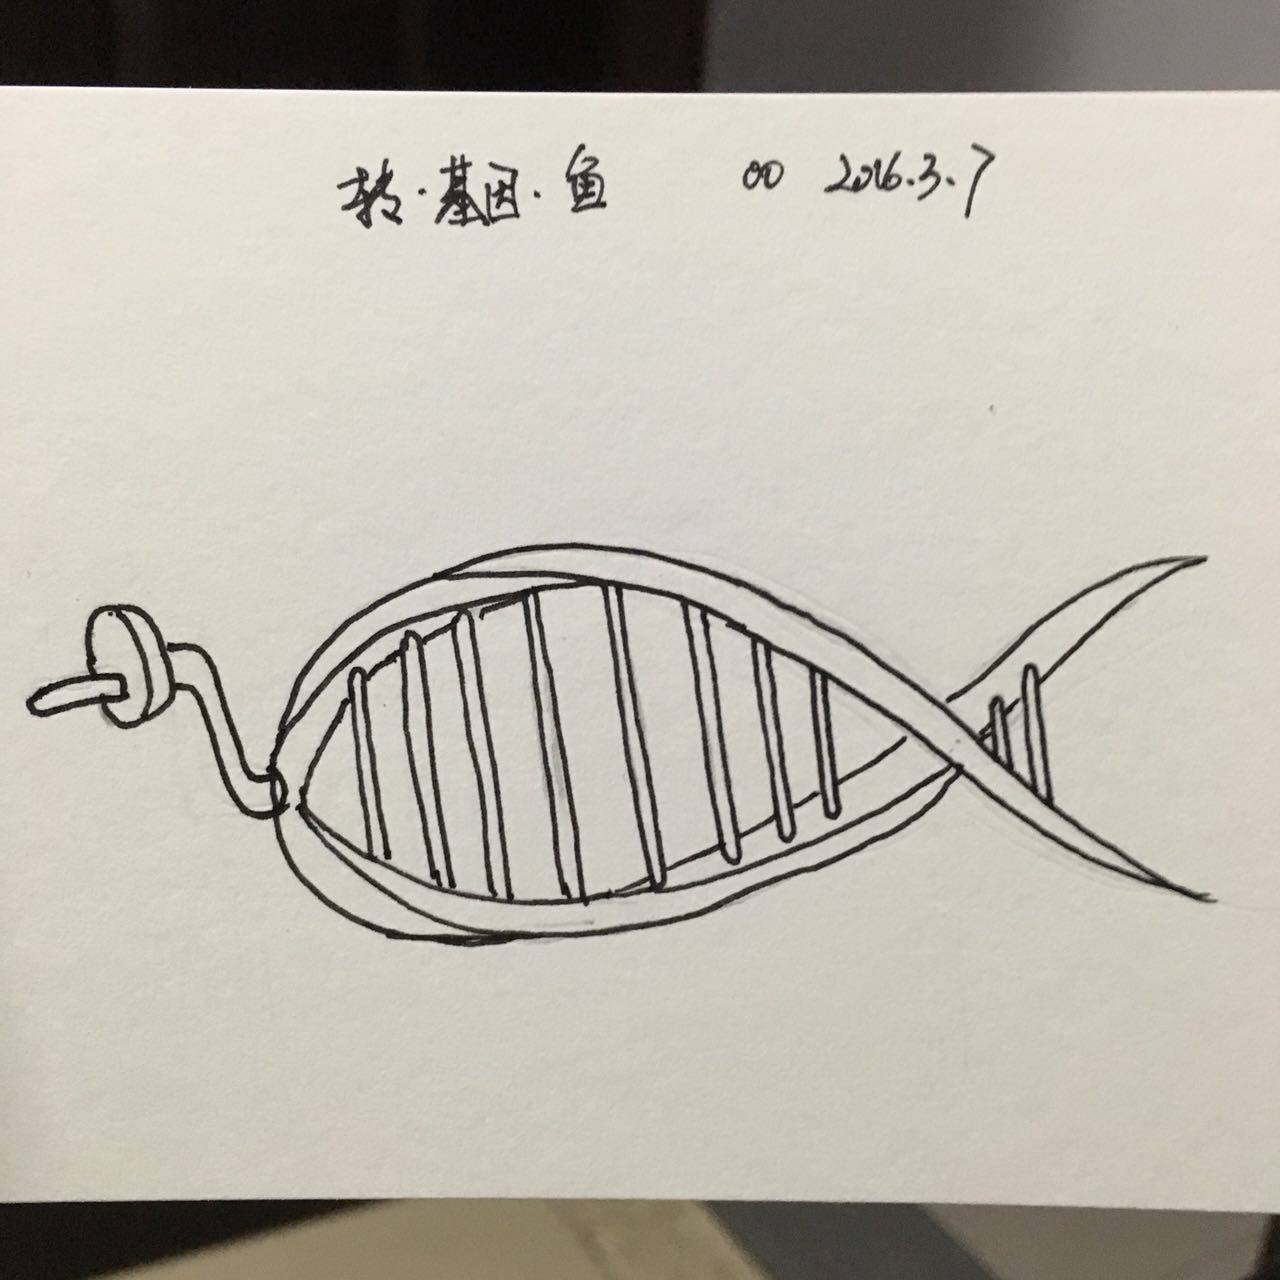 转·基因·鱼 00 2016.3.7